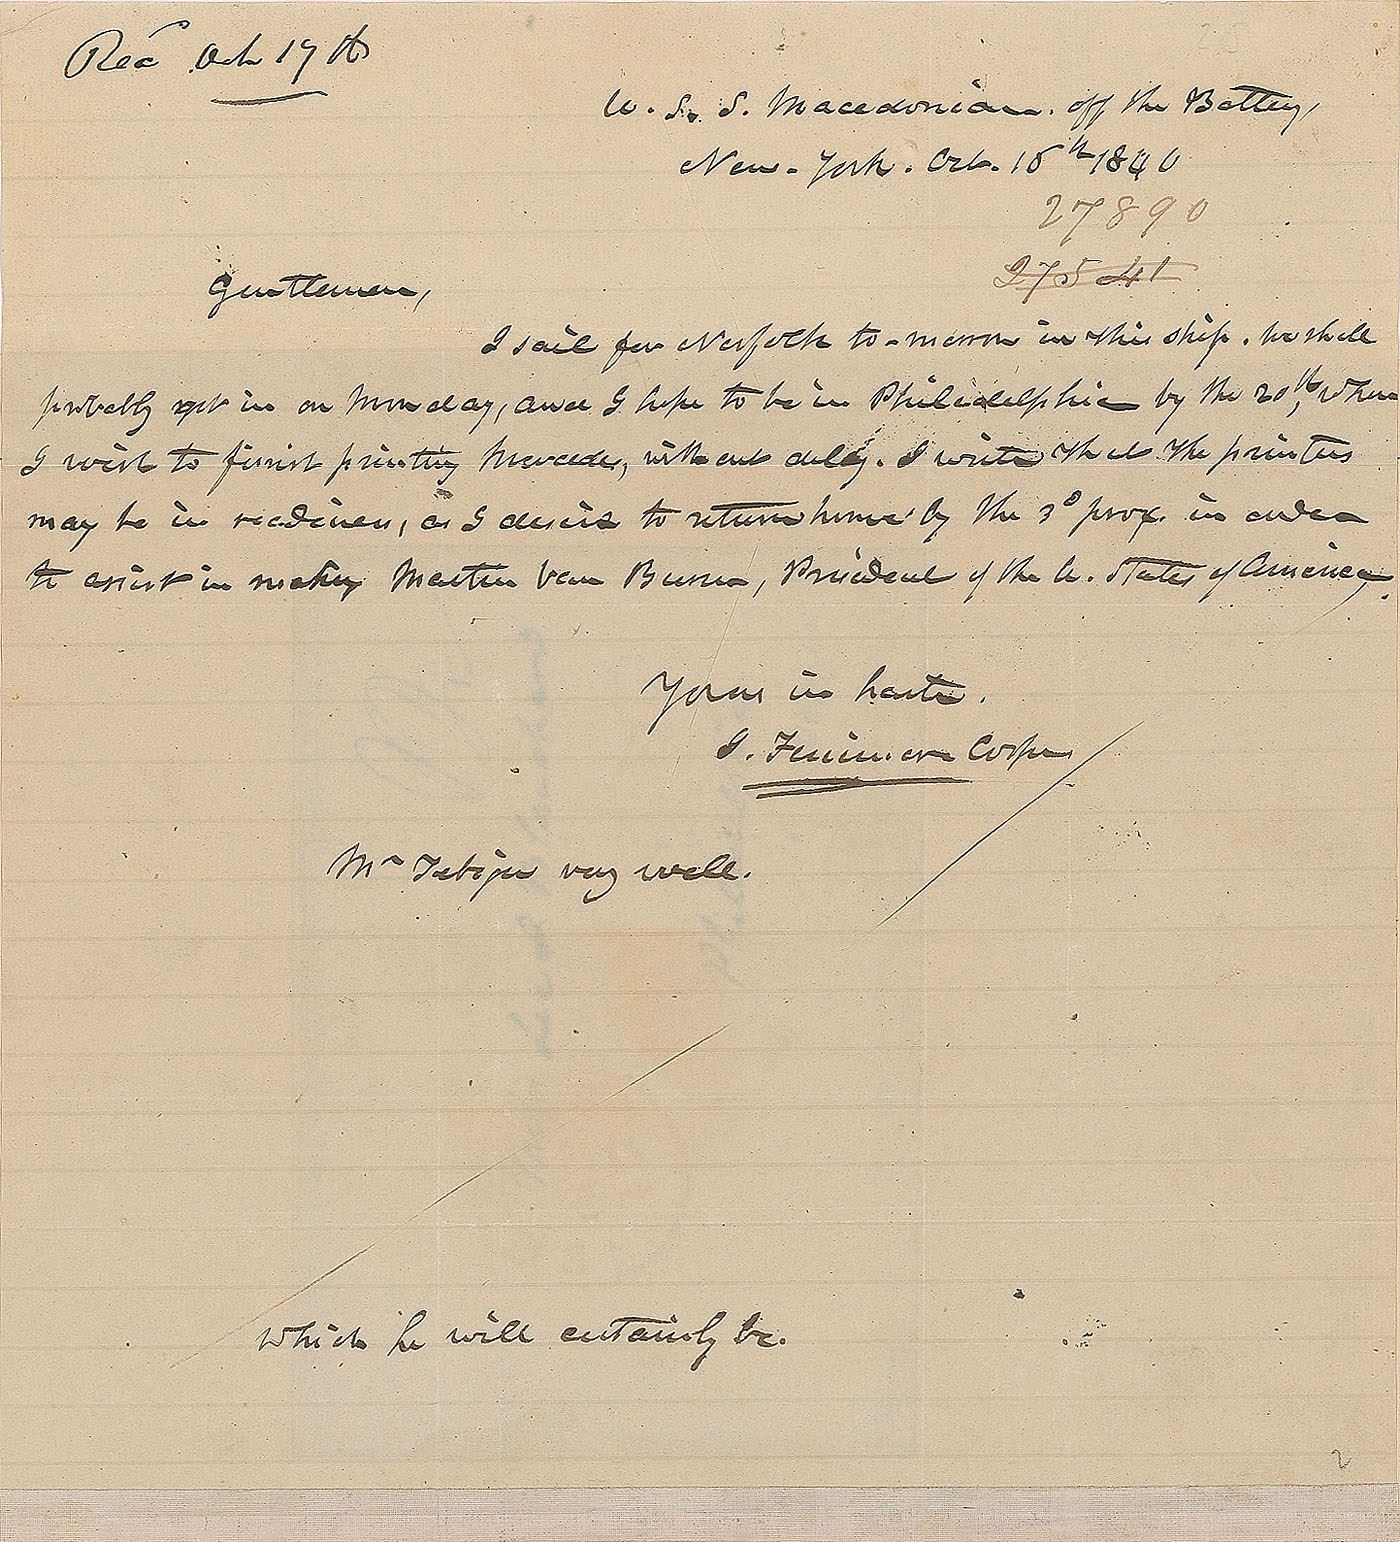 Recd Oct 19th
U. S. S. Macedonian. off the Battery,
New-York. Oct. 15th 1840
27890
27541
Gentlemen,
I sail for Norfolk to-morrow in this ship. We shall
probably get in on Monday, and I hope to be in Philadelphia by the 20th, when
I wish to finish printing Mercedes, without delay. I write that the printers
may be in readiness, as I desire to return home by the 3d prox. in order
to assist in making Martin Van Buren, President of the U. States of America.
Yours in haste.
J. Fenimore Cooper
Mr very well.
Which he will certainly be.
2